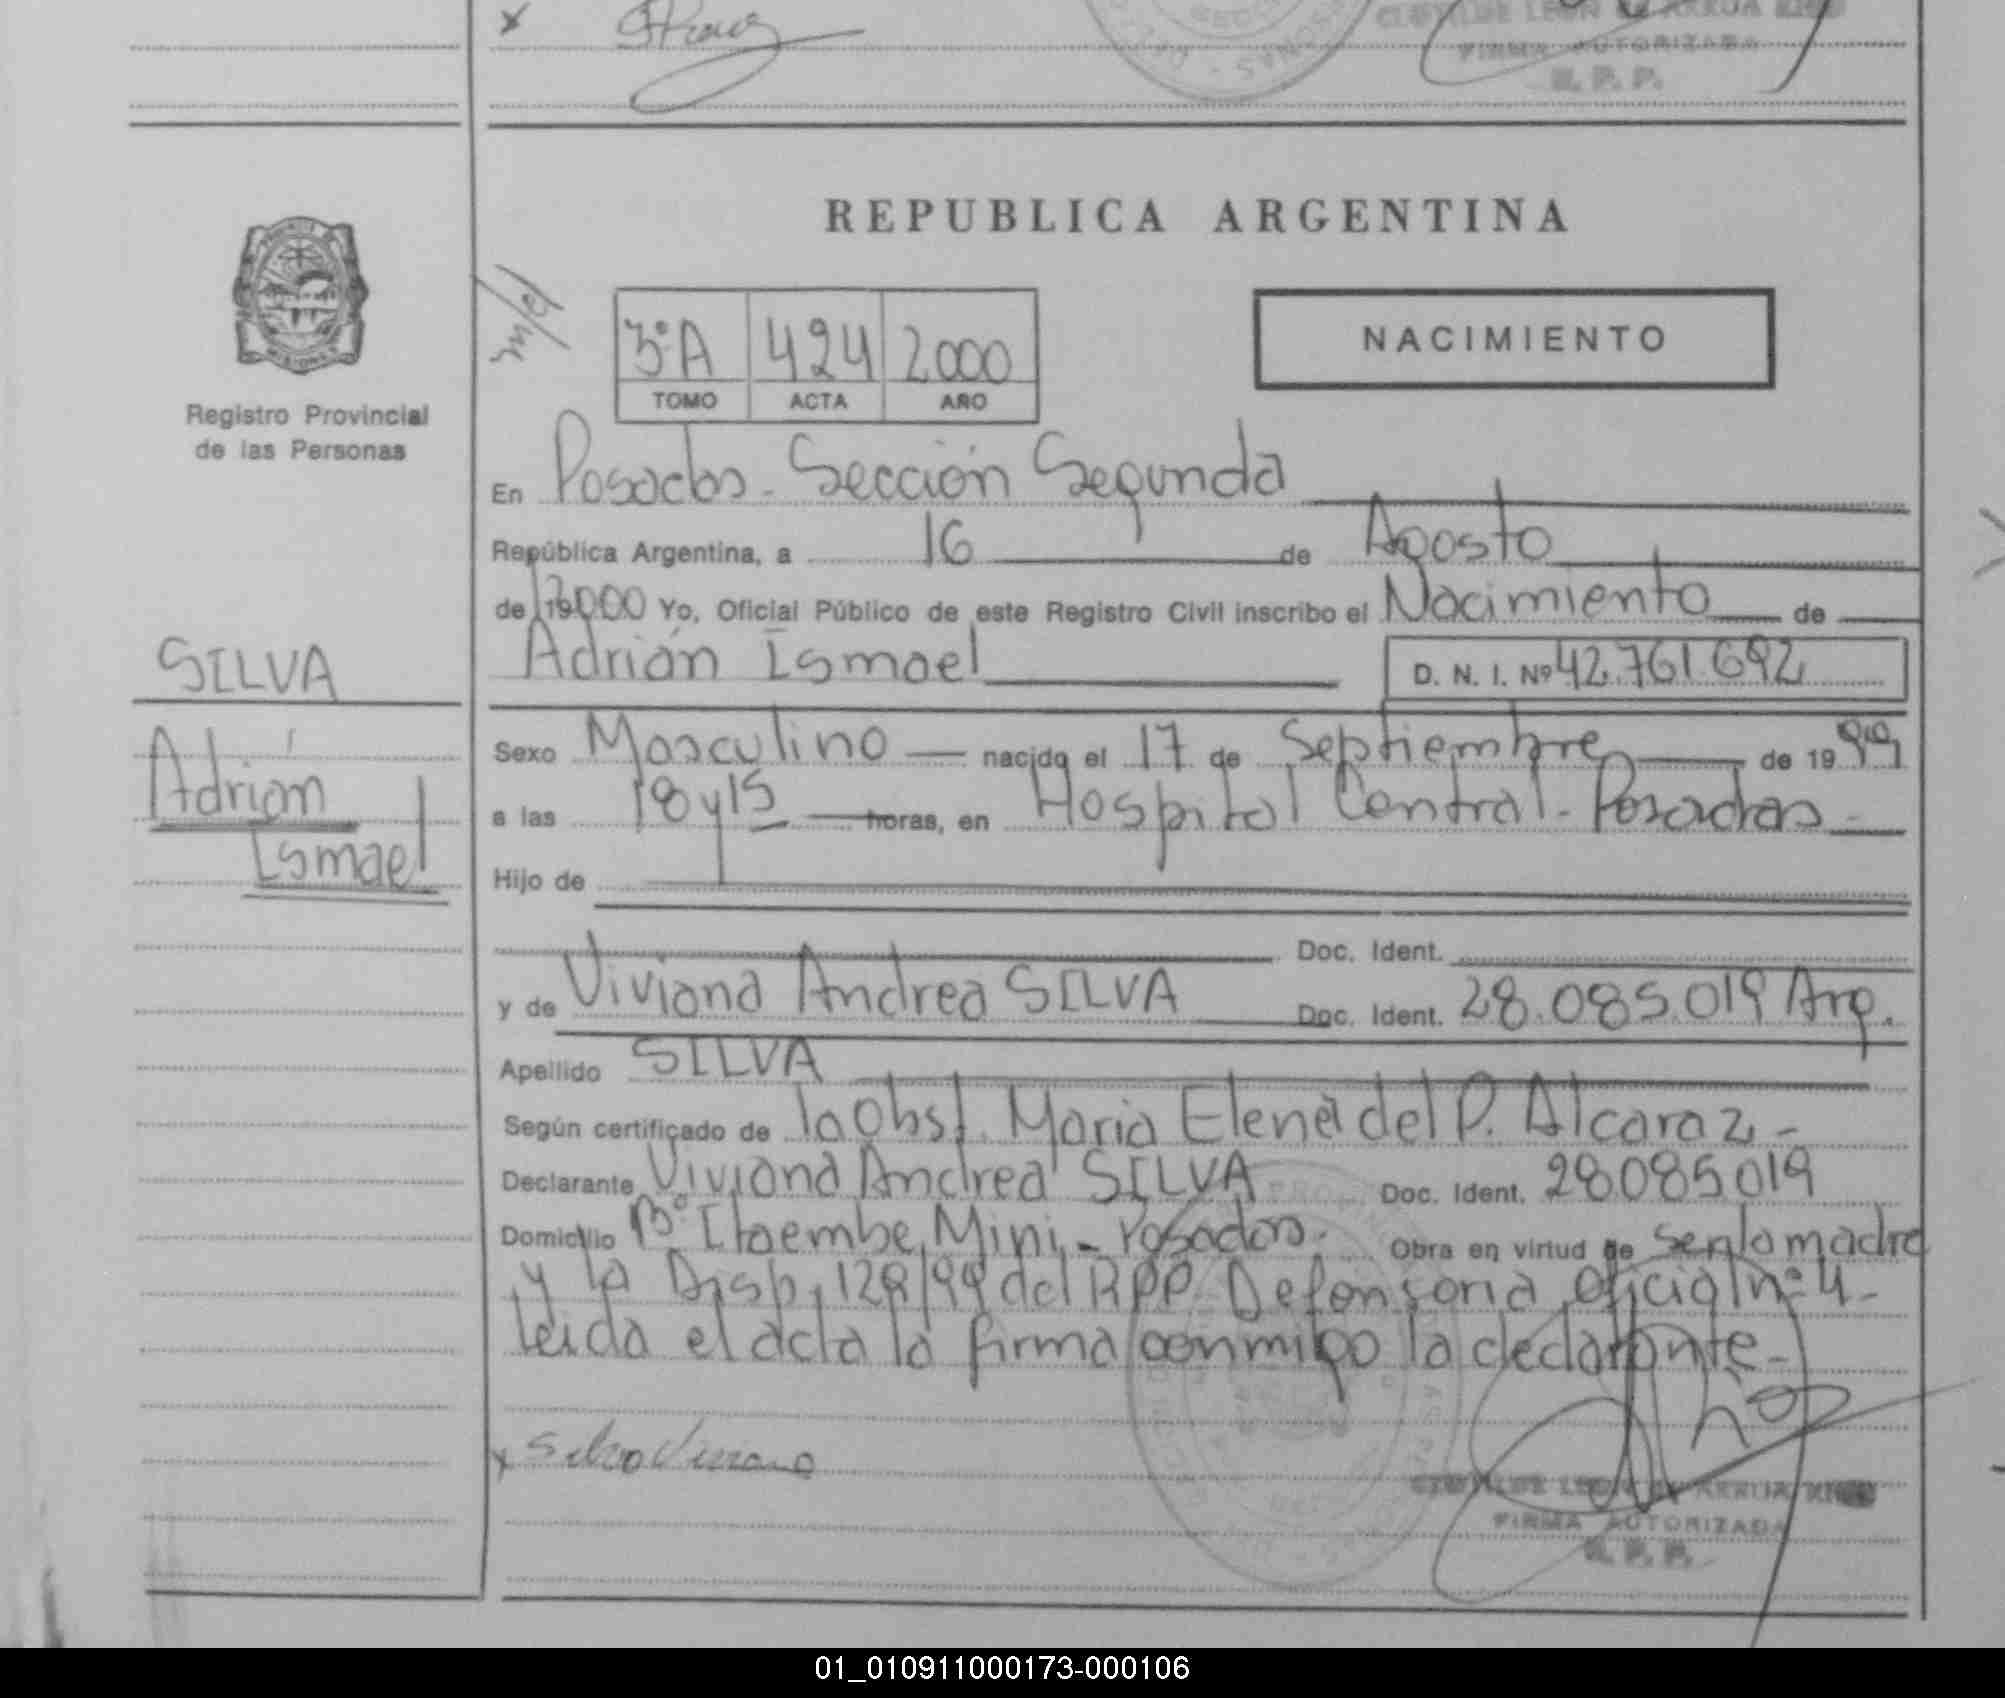 CLOTILDE LEON de ARRUA RIOS
FIRMA AUTORIZADA
R. P. P.
REPUBLICA ARGENTINA
Registro Provincial
de las Personas
3ºA 424 2000
TOMO ACTA AÑO
NACIMIENTO
En Posadas - Sección Segunda
República Argentina, a 16 de Agosto
de 2000 Yo, Oficial Público de este Registro Civil inscribo el Nacimiento de
Adrián Ismael D. N. I. Nº 42.761.692
SILVA
Adrián
Ismael
Sexo Masculino nacido el 17 de Septiembre de 1999
a las 18 y 15 horas, en Hospital Central - Posadas -
Hijo de
Doc. Ident.
y de Viviana Andrea SILVA Doc. Ident. 28.085.019 Arg.
Apellido SILVA
Según certificado de la Obst. Maria Elena del P. Alcaraz -
Declarante Viviana Andrea SILVA Doc. Ident. 28085019
Domicilio Bº Itaembe Mini - Posadas. Obra en virtud de ser la madre
y la Disp. 128/99 del RPP Defensoria Oficial nº 4 -
leida el acta la firma conmigo la declarante -
x Silva Viviana
CLOTILDE LEON de ARRUA RIOS
FIRMA AUTORIZADA
R. P. P.
01_010911000173-000106